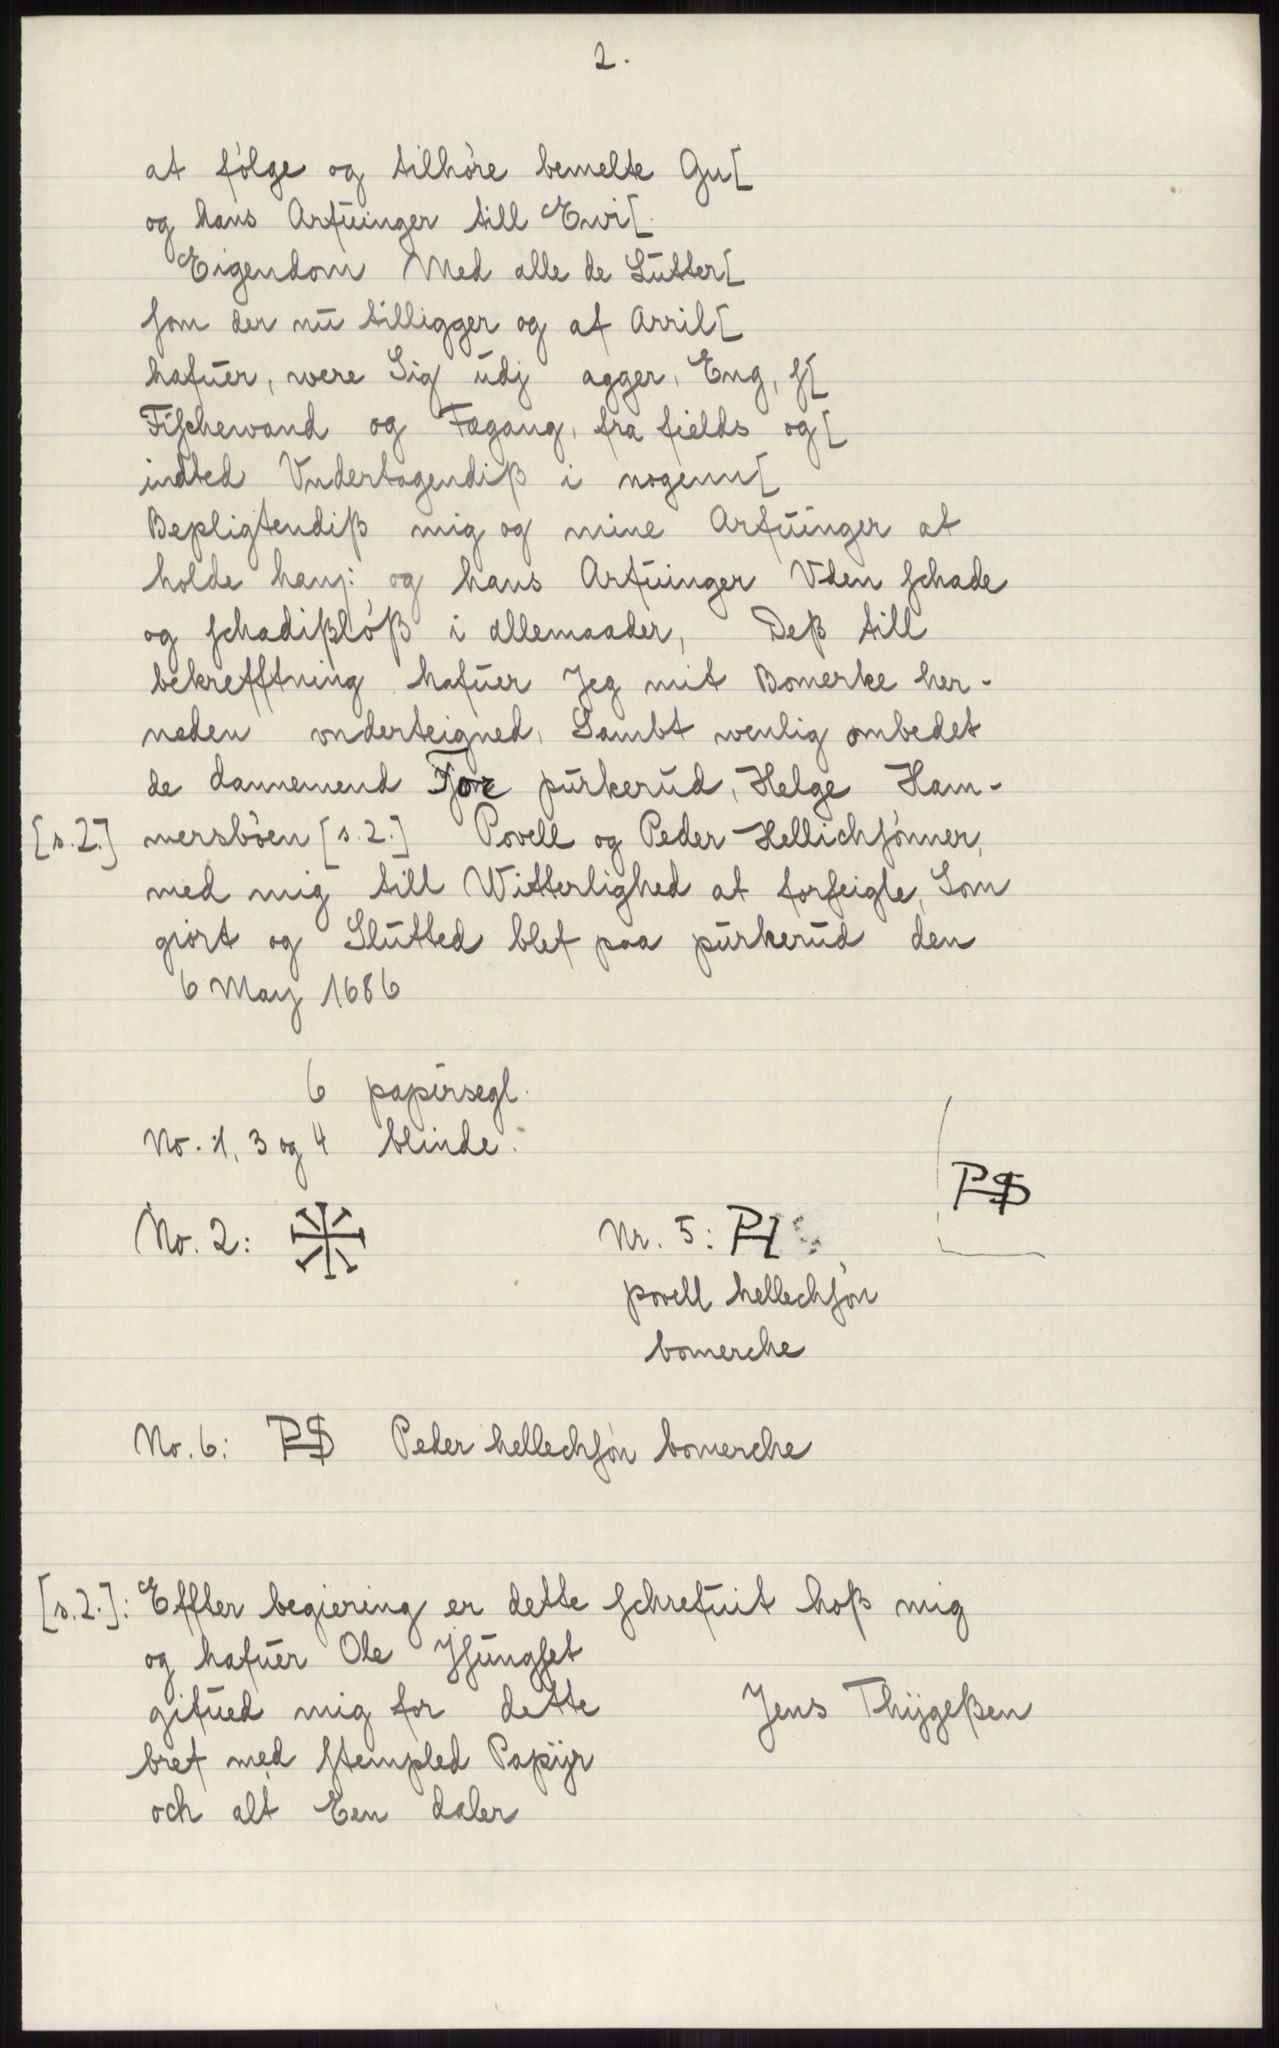 2.
at følge og tilhøre bemelte Gu[
og hans Arfuinger till Ewi[
Eigendom Med alle de Lutter[
som der nu tilligger og af Arril[
hafuer, were Sig udj agger, Eng, s[
Fischewand og Fægang, fra fields og [
indted Vndertagendiß i nogenn[
Bepligtendiß mig og mine Arfuinger at
holde hanj: og hans Arfuinger Vden schade
og schadißløß i allemaader, Deß till
bekrefftning hafuer Jeg mit Bomerke her-
neden vnderteigned, Sambt wenlig ombedet
de dannemend Tore purkerud, Helge Ham-
[s.2.] mersbøen [s.2.] Povell og Peder Hellichsønner,
med mig till Witterlighed at forseigle, Som
giort og Slutted blef paa purkerud den
6 May 1686
6 papirsegl.
No. 1, 3 og 4 blinde.
PHS
No. 2: Nr. 5: PH
povell hellechsøn
bomerche
No. 6: PHS Peder hellechsøn bomerche
[s.2.]: Effter begiering er dette schrefuit hoß mig
og hafuer Ole
gifued mig for dette Jens Thygeßen
bref med stempled Papijr
och alt Een daler